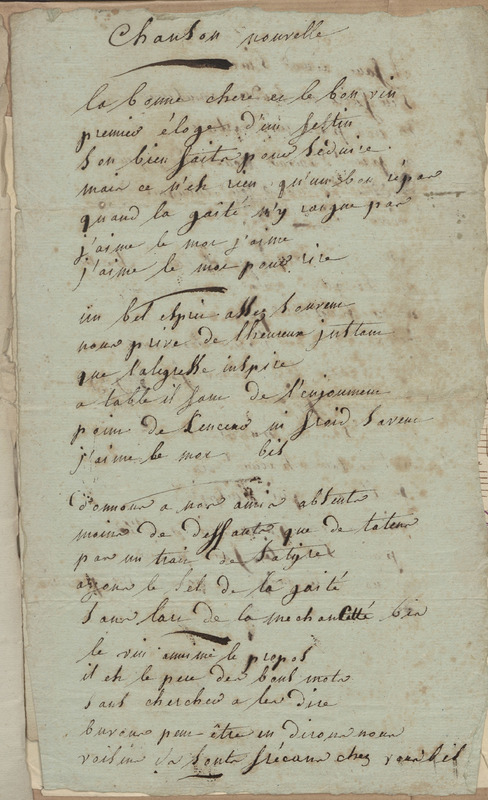 Chanson nouvelle
la bonne chere et le bon vin
premier éloge d'un festin
Son bien faits pour Séduire
mais ce n'est rien qu'un bon répas
quand la gaîté n'y raigne pas
j'aime le mot j'aime
j'aime le mot pour rire
un bel esprit assez Souvent
nous prive de l'heureux instant
que l'alegresse inspire
a table il faut de l'enjoument
point de ni froid Savent
j'aime le mot bis
donnons a nos amis absents
moins de deffauts que de talens
par un trait de Satyre
ayons le Sel de la gaité
Sans l'art de la mechancetté bis
le vin anime le propos
il est le pere des bons mots
sans chercher a les dire
buvons peut-être en dirons nous
voisins Sont frécans chez vous bis